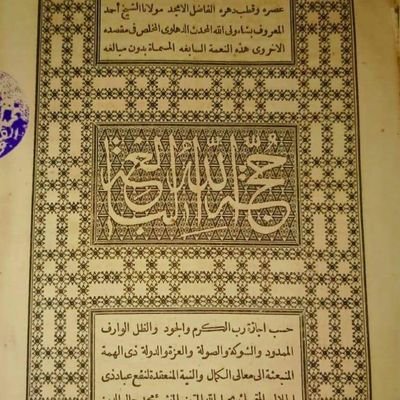 عصره وقطب دهره الفاضل الامجد مولانا الشيخ أحمد
المعروف بشاه ولى الله المحدث الدهلوى المخلص فى مقصده
الاخروى هذه النعمة السابغه المسماة بدون مبالغه
حجة الله البالغة
حسب اجازة رب الكرم والجود والظل الوارف
الممدود والشوكة والصولة والعزة والدولة ذى الهمة
المنبعثة الى معالى الكمال والنية المنعقدة لنفع عباد ذى